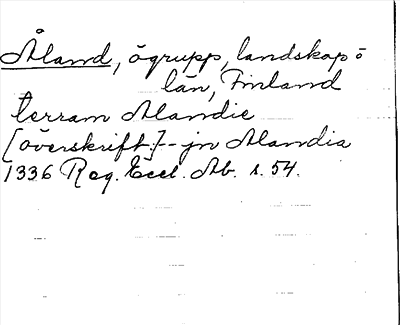 Åland, ögrupp, landskap o
län, Finland
terram Alandie
[överskrift:] - jn Alandia
1336 Reg. Eccl. Ab. s. 54.